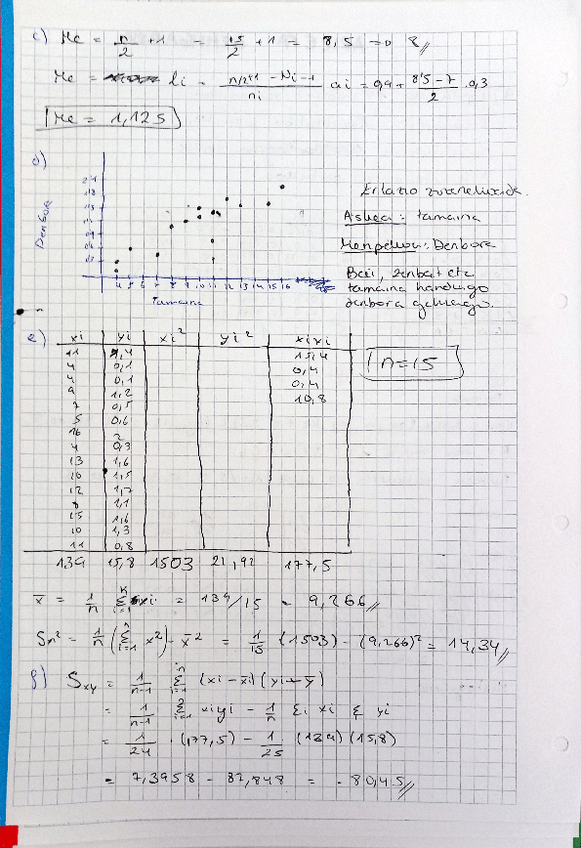 c) Me = n/2 + 1 = 15/2 + 1 = 8,5 => 8//
Me = li - n/2+1 - Ni-1 / ni ai = 0,9 + 8'5 - 7 / 2 . 0,3
Me = 1,125
d)
Denbora
4 5 6 7 8 9 10 11 12 13 14 15 16
tamaina
Erlazio zuzenekoa da.
Askea: tamaina
Menpekoa: Denbora
Bai, zenbat eta
tamaina handiago
denbora gehiago.
e) xi yi xi² yi² xiyi
11 1,4 15,4
4 0,1 0,4
4 0,1 0,4
9 1,2 10,8
7 0,5
5 0,6
16 2
4 0,3
13 1,6
10 1,5
12 1,7
8 1,1
15 1,6
10 1,3
11 0,8
139 15,8 1503 21,92 177,5
n=15
x̄ = 1/n Σ xi = 139/15 = 9,266//
Sn² = 1/n (Σ x²) - x̄² = 1/15 (1503) - (9,266)² = 14,34//
f) Sxy = 1/n-1 Σ (xi - x̄i) (yi - ȳ)
= 1/n-1 Σ xiyi - 1/n Σi xi Σ yi
= 1/24 . (177,5) - 1/25 . (139) (15,8)
= 7,3958 - 87,848 = - 80,45//